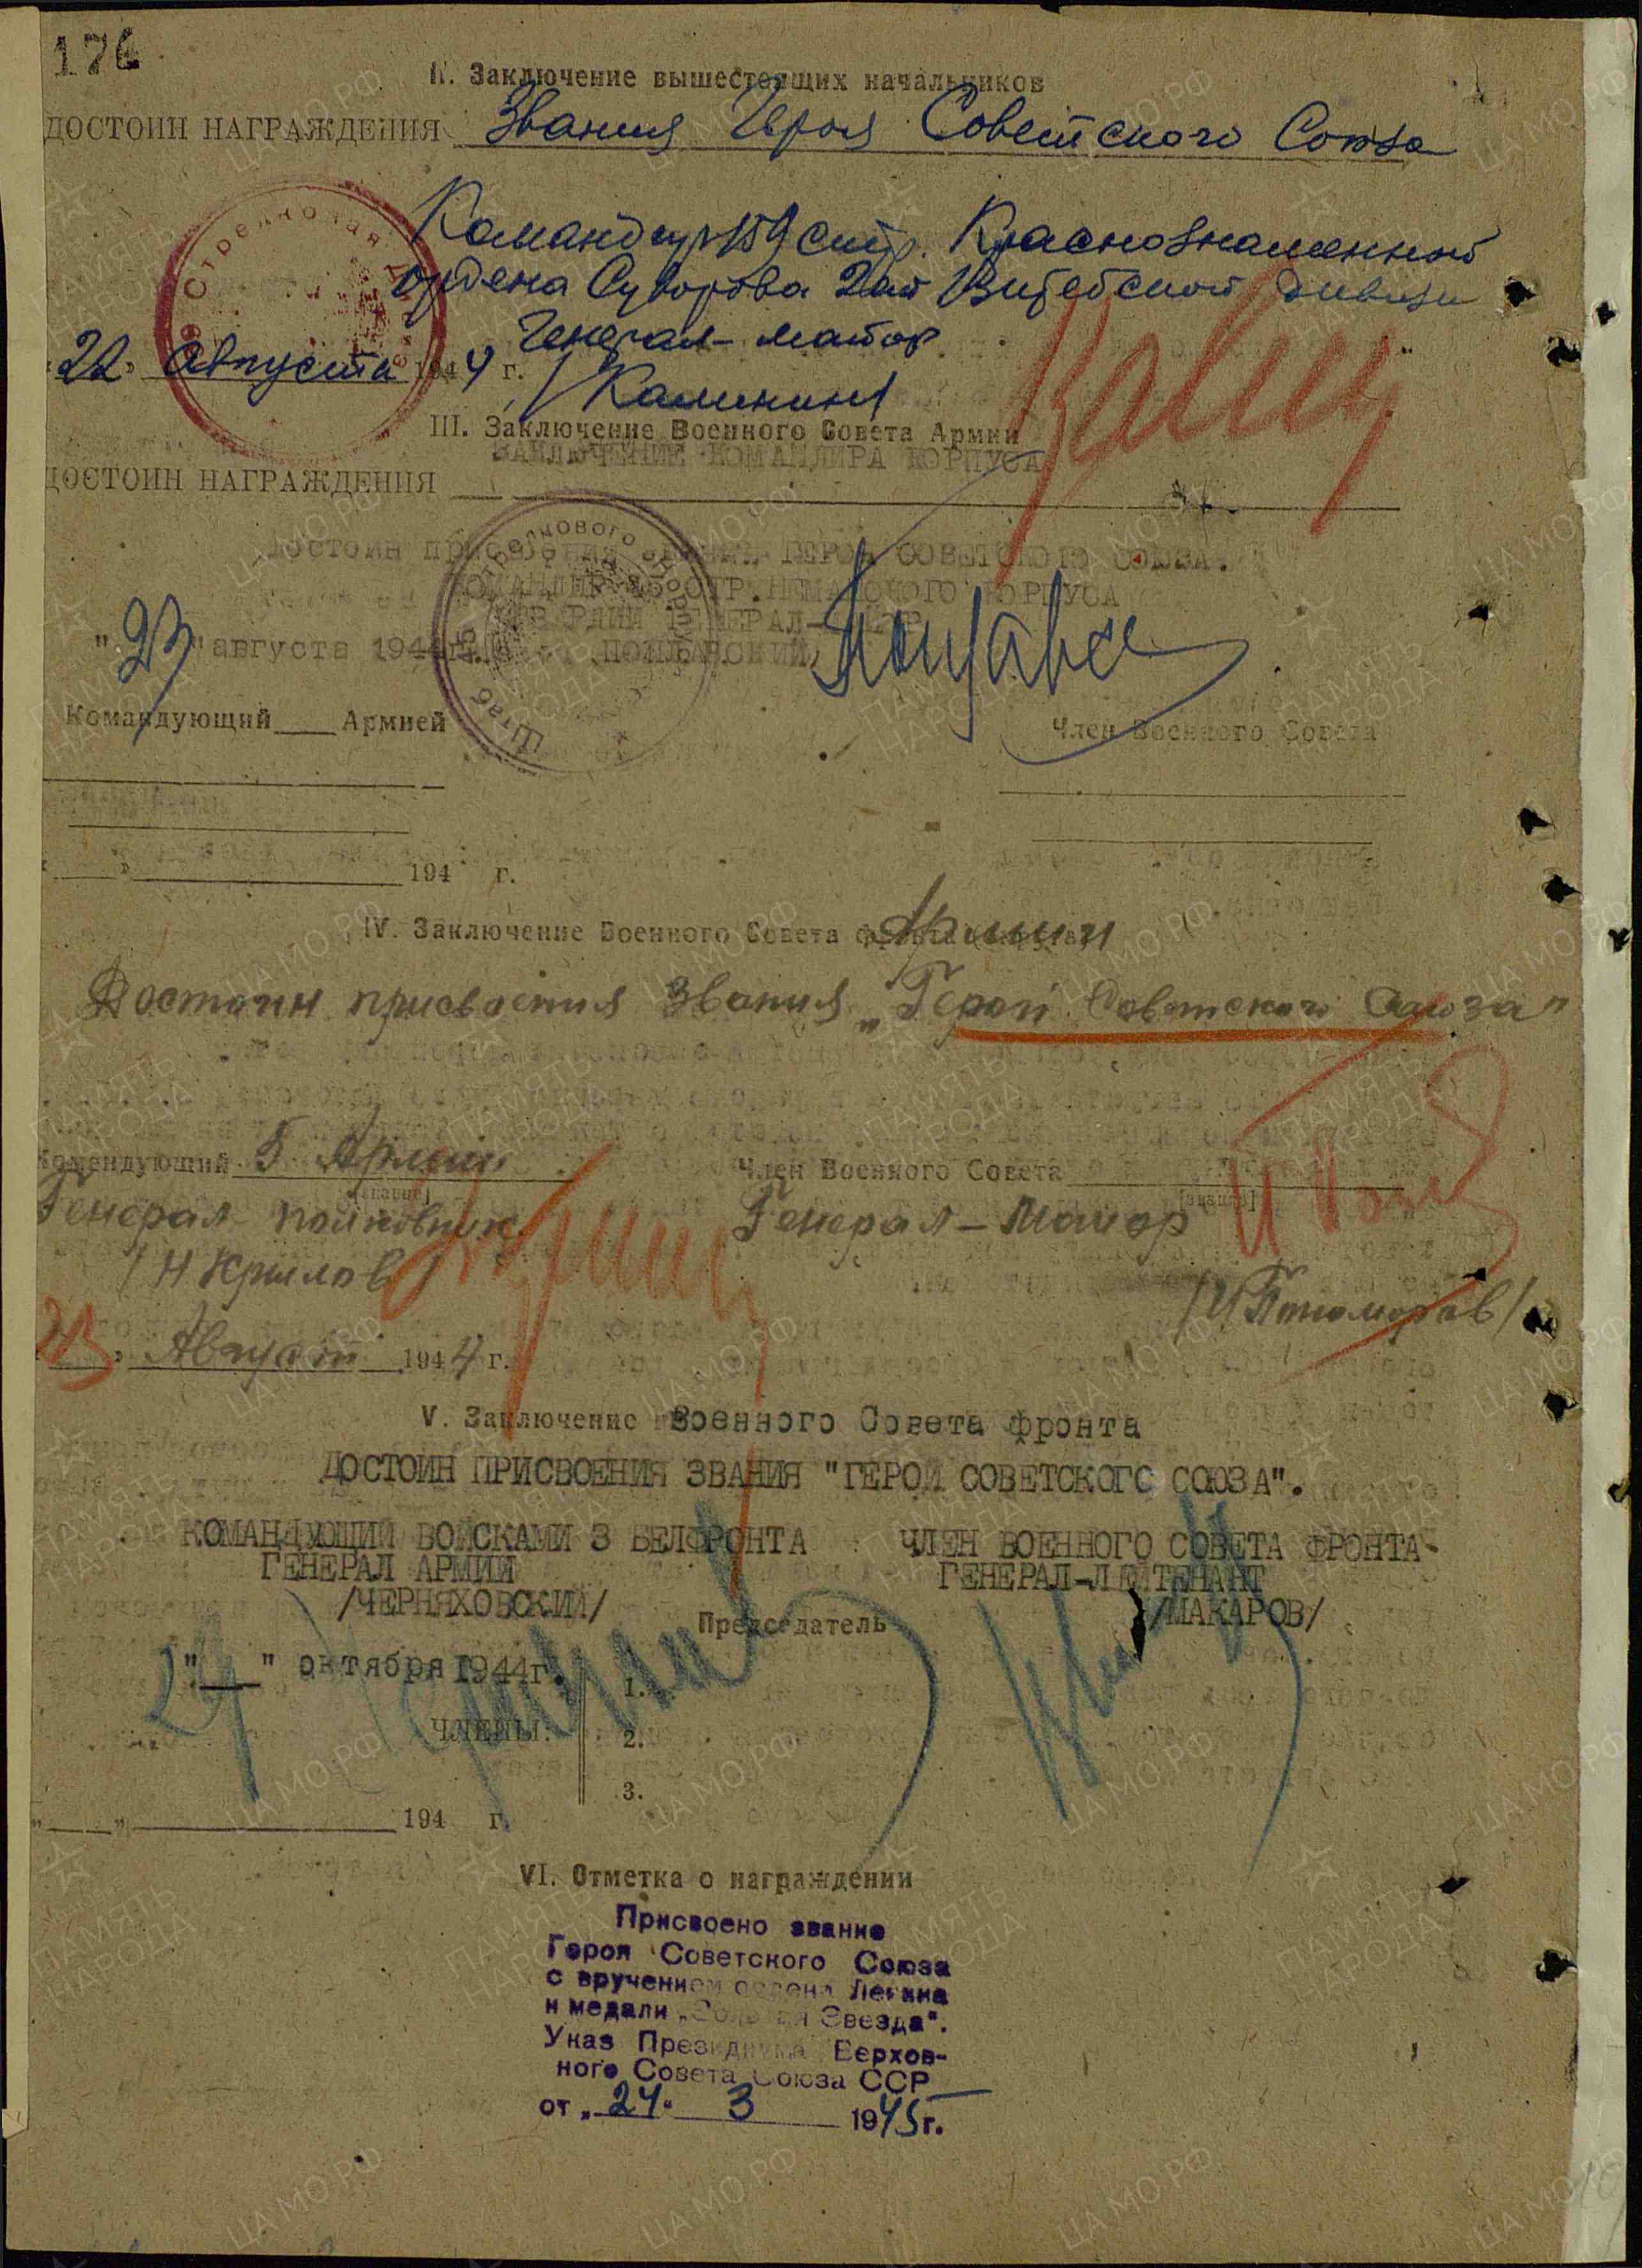 176
II. Заключение вышестоящих начальников
ДОСТОИН НАГРАЖДЕНИЯ Звания Героя Советского Союза
Командир 159 стр. Краснознаменной
ордена Суворова 2ой Витебской дивизи
Генерал-майор
"22" Августа 1944 г.
/Калинин/
III. Заключение Военного Совета Армии
ЗАКЛЮЧЕНИЕ КОМАНДИРА КОРПУСА
ДОСТОИН НАГРАЖДЕНИЯ
ДОСТОИН ПРИСВОЕНИЯ ЗВАНИЯ ГЕРОЯ СОВЕТСКОГО СОЮЗА.
КОМАНДИР СТР. НЕМАНСКОГО КОРПУСА
ГВАРДИИ ГЕНЕРАЛ-
"23" августа 1944 г.
Командующий Армией
Член Военного Совета
"__" 194 г.
IV. Заключение Военного Совета Армии
Достоин присвоения звания "Герой Советского Союза"
Командующий 5 Армии
Член Военного Совета
(звание)
(звание)
Генерал полковник
Генерал-Майор
/Н Крылов/
/И Пономарев/
"23" Август 1944 г.
V. Заключение Военного Совета фронта
ДОСТОИН ПРИСВОЕНИЯ ЗВАНИЯ "ГЕРОЙ СОВЕТСКОГО СОЮЗА".
КОМАНДУЮЩИЙ ВОЙСКАМИ 3 БЕЛФРОНТА
ЧЛЕН ВОЕННОГО СОВЕТА ФРОНТА-
ГЕНЕРАЛ АРМИИ
ГЕНЕРАЛ-ЛЕЙТЕНАНТ
/ЧЕРНЯХОВСКИЙ/
/МАКАРОВ/
Председатель
"24" октября 1944г.
1.
ЧЛЕНЫ:
2.
3.
"__" 194 г.
VI. Отметка о награждении
Присвоено звание
Героя Советского Союза
с вручением ордена Ленина
и медали „Золотая Звезда“.
Указ Президиума Верхов-
ного Совета Союза ССР
от „24“ 3 1945г.